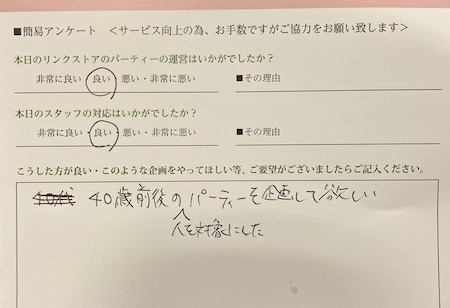 ■簡易アンケート ＜サービス向上の為、お手数ですがご協力をお願い致します＞
本日のリンクストアのパーティーの運営はいかがでしたか?
非常に良い・良い・悪い・非常に悪い ■その理由
本日のスタッフの対応はいかがでしたか?
非常に良い・良い・悪い・非常に悪い ■その理由
こうした方が良い・このような企画をやってほしい等、ご要望がございましたらご記入ください。
40歳前後のパーティーを企画して欲しい
人を対象にした